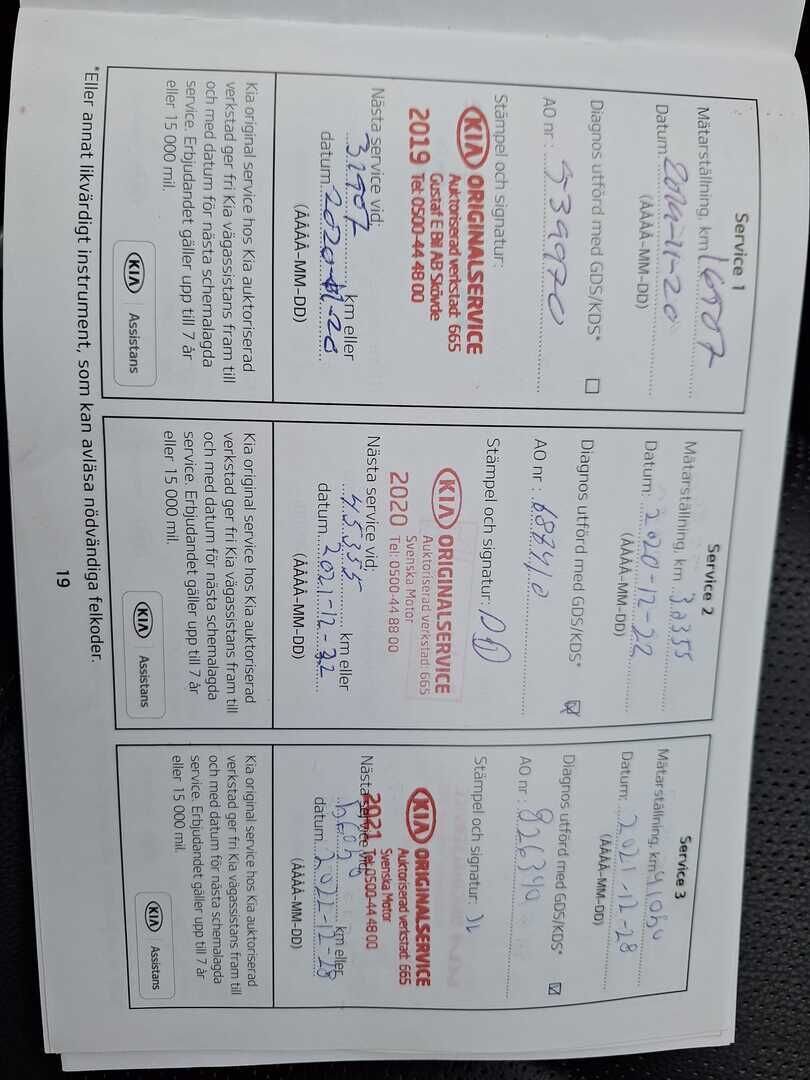 Service 1
Mätarställning, km 16907
Datum 2019-11-20
(ÅÅÅÅ-MM-DD)
Diagnos utförd med GDS/KDS*
AO nr: 539970
Stämpel och signatur:
KIA ORIGINALSERVICE
Auktoriserad verkstad: 665
Gustaf E Bil AB Skövde
2019 Tel: 0500-44 48 00
Nästa service vid:
31907 km eller
datum 2020-11-20
(ÅÅÅÅ-MM-DD)
Kia original service hos Kia auktoriserad
verkstad ger fri Kia vägassistans fram till
och med datum för nästa schemalagda
service. Erbjudandet gäller upp till 7 år
eller 15 000 mil.
KIA Assistans
Service 2
Mätarställning, km 30355
Datum: 2020-12-22
(ÅÅÅÅ-MM-DD)
Diagnos utförd med GDS/KDS*
AO nr: 687410
Stämpel och signatur:
KIA ORIGINALSERVICE
Auktoriserad verkstad: 665
Svenska Motor
2020 Tel: 0500-44 88 00
Nästa service vid:
45355 km eller
datum 2021-12-22
(ÅÅÅÅ-MM-DD)
Kia original service hos Kia auktoriserad
verkstad ger fri Kia vägassistans fram till
och med datum för nästa schemalagda
service. Erbjudandet gäller upp till 7 år
eller 15 000 mil.
KIA Assistans
Service 3
Mätarställning, km
Datum: 2021-12-28
(ÅÅÅÅ-MM-DD)
Diagnos utförd med GDS/KDS*
AO nr: 826340
Stämpel och signatur:
KIA ORIGINALSERVICE
Auktoriserad verkstad: 665
Svenska Motor
2021 Tel: 0500-44 48 00
Nästa service vid:
km eller
datum 2022-12-28
(ÅÅÅÅ-MM-DD)
Kia original service hos Kia auktoriserad
verkstad ger fri Kia vägassistans fram till
och med datum för nästa schemalagda
service. Erbjudandet gäller upp till 7 år
eller 15 000 mil.
KIA Assistans
*Eller annat likvärdigt instrument, som kan avläsa nödvändiga felkoder.
19